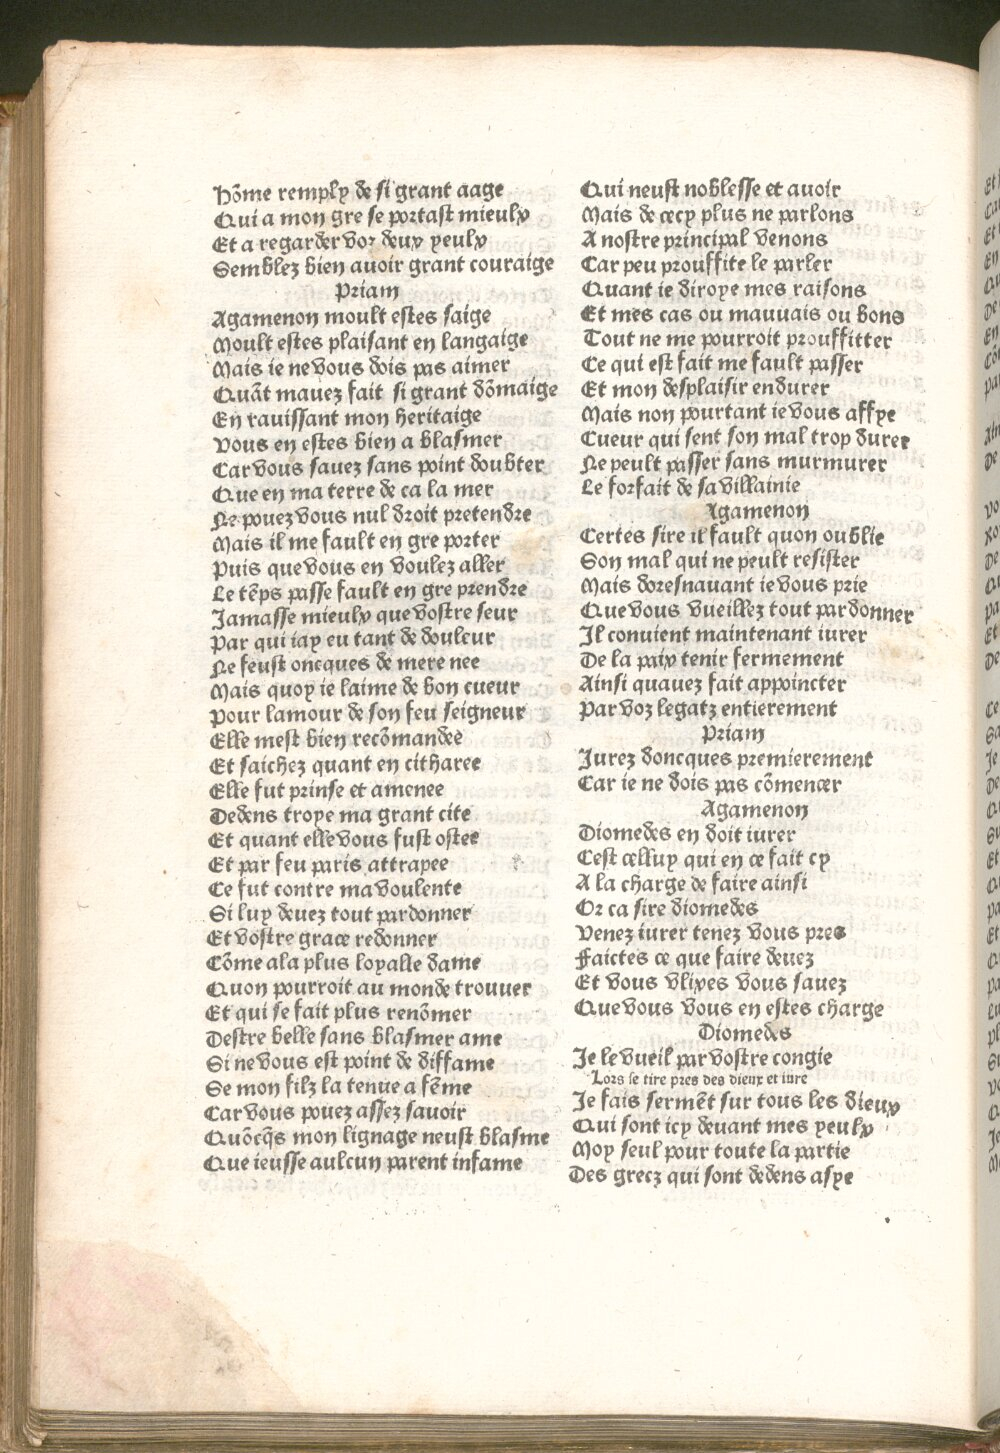 Hõme remply de si grant aage
Qui a mon gre se portast mieulx
Et a regarder voz deux yeulx
Semblez bien auoir grant couraige
Priam
Agamenon moult estes saige
Moult estes plaisant en langaige
Mais ie ne vous dois pas aimer
Quãt mauez fait si grant dõmaige
En rauissant mon heritaige
Vous en estes bien a blasmer
Car vous sauez sans point doubter
Que en ma terre de ca la mer
Ne pouez vous nul droit pretendre
Mais il me fault en gre porter
Puis que vous en voulez aller
Le tẽps passe fault en gre prendre
Jamasse mieulx que vostre seur
Par qui iay eu tant de douleur
Ne feust oncques de mere nee
Mais quoy ie laime de bon cueur
Pour lamour de son feu seigneur
Elle mest bien recõmandee
Et saichez quant en citharee
Elle fut prinse et amenee
Dedens troye ma grant cite
Et quant elle vous fust ostee
Et par feu paris attrapee
Ce fut contre ma voulente
Si luy deuez tout pardonner
Et vostre grace redonner
Cõme a la plus loyalle dame
Quon pourroit au monde trouuer
Et qui se fait plus renõmer
Destre belle sans blasmer ame
Si ne vous est point de diffame
Se mon filz la tenue a fẽme
Car vous pouez assez sauoir
Quõcq̃s mon lignage neust blasme
Que ieusse aulcun parent infame
Qui neust noblesse et auoir
Mais de cecy plus ne parlons
A nostre principal venons
Car peu prouffite le parler
Quant ie diroye mes raisons
Et mes cas ou mauuais ou bons
Tout ne me pourroit prouffitter
Ce qui est fait me fault passer
Et mon desplaisir endurer
Mais non pourtant ie vous affye
Cueur qui sent son mal trop durer
Ne peult passer sans murmurer
Le forfait de sa villainie
Agamenon
Certes sire il fault quon oublie
Son mal qui ne peult resister
Mais doresnauant ie vous prie
Que vous vueillez tout pardonner
Il conuient maintenant iurer
De la paix tenir fermement
Ainsi quauez fait appoincter
Par voz legatz entierement
Priam
Jurez doncques premierement
Car ie ne dois pas cõmencer
Agamenon
Diomedes en doit iurer
Cest celluy qui en ce fait cy
A la charge de faire ainsi
Or ca sire diomedes
Venez iurer tenez vous pres
Faictes ce que faire deuez
Et vous vlixes vous sauez
Que vous vous en estes charge
Diomedes
Je le vueil par vostre congie
Lors se tire pres des dieux et iure
Je fais sermẽt sur tous les dieux
Qui sont icy deuant mes yeulx
Moy seul pour toute la partie
Des grecz qui sont dedens asye